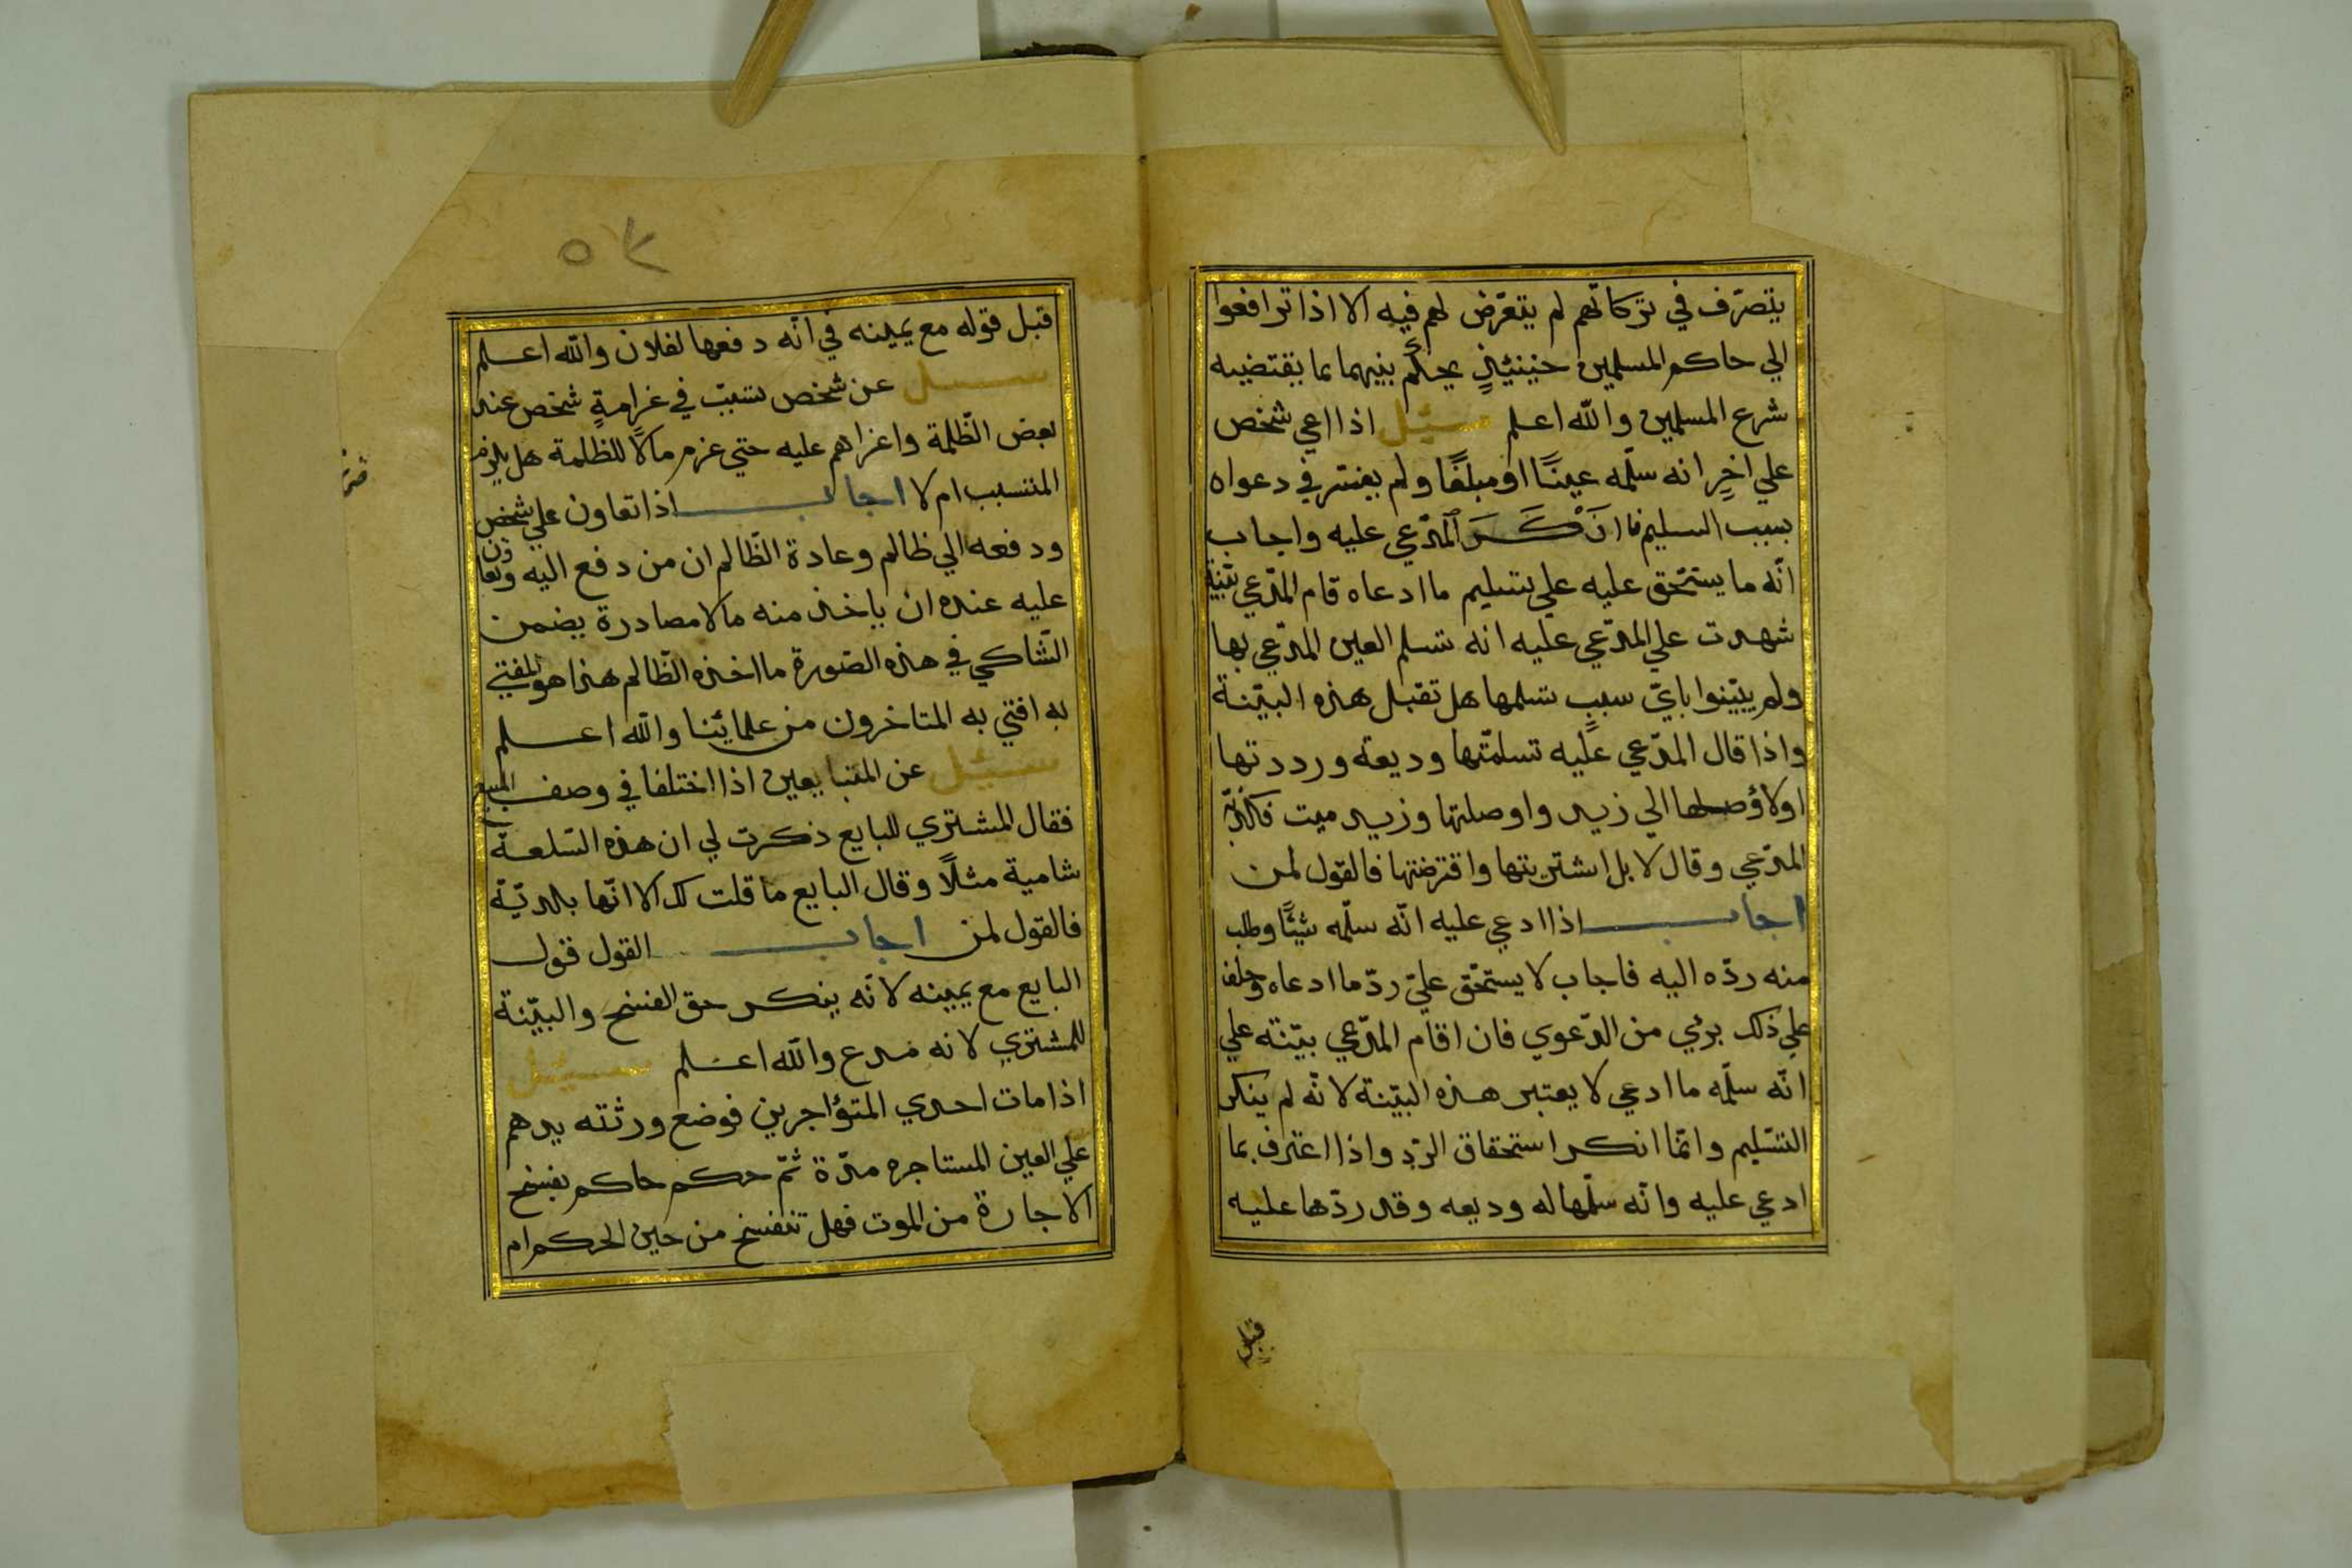 يتصرّف في تركاتهم لم يتعّرض لهم فيه الا اذا ترافعوا
الي حاكم المسلمين حينئيذٍ يحكم بينهما بما يقتضيه
شرع المسلمين والله اعلم سئيل اذا اعي شخص
علي اخرٍ انه سلّمه عينًا او مبلغًا ولم يفسر في دعواه
بسبب السليم فاانَكَرَ المدّعي عليه واجاب
انّه ما يستحّق عليه علي تسليم ما ادعاه قام المدّعي بيّنة
شهدت علي المدّعي عليه انه تسلم العين المدّعي بها
ولم يبّينوا بايّ سببٍ تسلمها هل تقبل هذه البيّنة
واذا قال المدّعي عليه تسلمّتها وديعة ورددتها
اولاؤصلها الي زيد واوصلتها وزيد ميت فكذّبه
المدّعي وقال لا بل اشتريتها واقترضتها فالقول لمن
اجاب اذا ادعي عليه انّه سلّمه شيئًا وطلب
منه ردّه اليه فاجاب لا يستحّق عليّ ردّ ما ادعاه وحلف
علي ذلك بري من الدّعوي فان اقام المدّعي بيّنة علي
انّه سلّمه ما ادعي لا يعتبر هذه البيّنة لانّه لم ينكر
التسّليم وانمّا انكر استحقاق الردّ واذا اعترف بما
ادعي عليه وانّه سلّمها له وديعه وقد ردّها عليه
قبل
٥٤
قبل قوله مع يمينه في انّه دفعها لفلان والله اعلم
سئيل عن شخص تسبّب في غرامةٍ شخص عند
بعض الظّلمة واغراهم عليه حتي غرم مالًا للظلمة هل يلزم
المتسبب ام لا اجاب اذا تعاون علي شخص
ودفعه الي ظالم وعادة الظّالم ان من دفع اليه وتعاون
عليه عنده ان ياخذ منه مالا مصادرة يضمن
الشّاكي في هذه الصّورة ما اخذه الظّالم هذا هو المفتي
به افتي به المتاخرون من علمائنا والله اعلم
سئيل عن المتبايعين اذا اختلفا في وصف المبيع
فقال المشتري للبايع ذكرت لي ان هذه السّلعة
شامية مثلًا وقال البايع ما قلت لك الا انّها بلديّة
فالقول لمن اجاب القول قول
البايع مع يمينه لانّه ينكر حق الفسخ والبيّنة
للمشتري لانه مدع والله اعلم سئيل
اذا مات احدي المتؤاجرين فوضع ورثته يدهم
علي العين المستاجره مدّة ثمّ حكم حاكم بفسخ
الاجارة من الموت فهل تنفسخ من حين الحكم ام